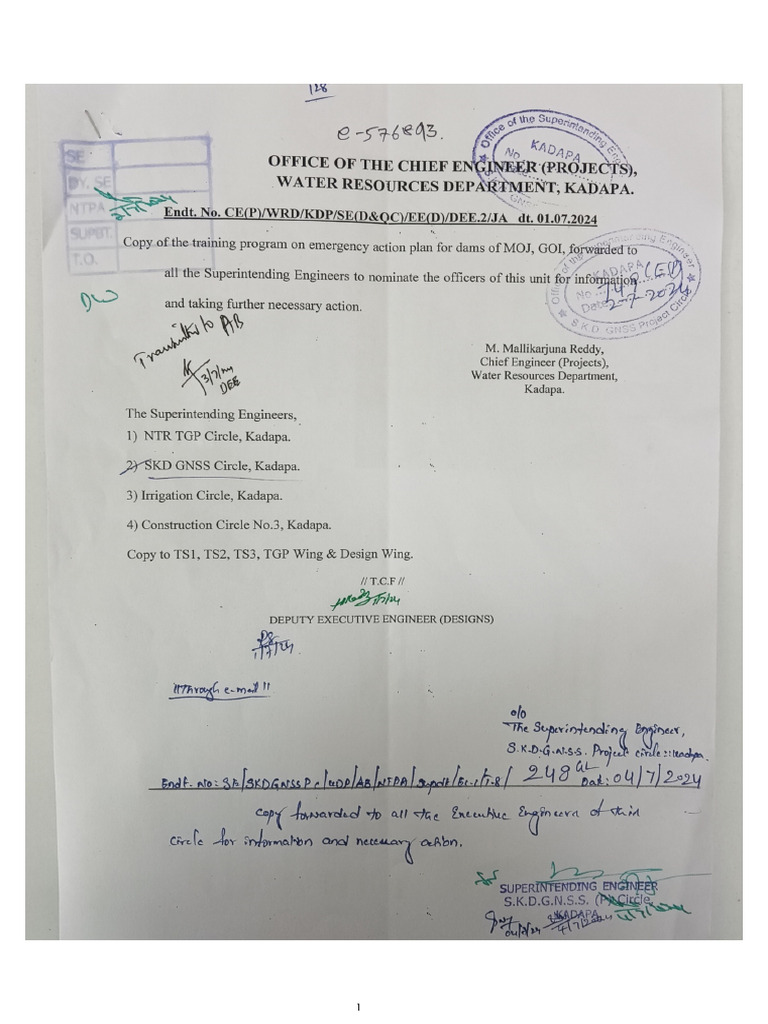 128
e-576893.
Office of the Superintending Engineer
KADAPA
No
SE
DY. SE
NTPA
SUPDT.
T.O.
OFFICE OF THE CHIEF ENGINEER (PROJECTS),
WATER RESOURCES DEPARTMENT, KADAPA.
Endt. No. CE(P)/WRD/KDP/SE(D&QC)/EE(D)/DEE.2/JA dt. 01.07.2024
Copy of the training program on emergency action plan for dams of MOJ, GOI, forwarded to
all the Superintending Engineers to nominate the officers of this unit for information
and taking further necessary action.
Office of the Superintending Engineer
KADAPA
No
Date 2-7-2024
S.K.D. GNSS Project Circle
DW
to AB
3/7/24
DEE
M. Mallikarjuna Reddy,
Chief Engineer (Projects),
Water Resources Department,
Kadapa.
The Superintending Engineers,
1) NTR TGP Circle, Kadapa.
2) SKD GNSS Circle, Kadapa.
3) Irrigation Circle, Kadapa.
4) Construction Circle No.3, Kadapa.
Copy to TS1, TS2, TS3, TGP Wing & Design Wing.
// T.C.F //
DEPUTY EXECUTIVE ENGINEER (DESIGNS)
11Through e-mail 11
o/o
The Superintending Engineer,
S.K.D.G.N.S.S. Project circle::Kadapa.
Endt. No: SE/SKDGNSSP /AB/NTPA/Supdt/ 248 Dat: 04/7/2024
copy forwarded to all the Executive Engineers of this
circle for information and necessary action.
SUPERINTENDING ENGINEER
S.K.D.G.N.S.S. (P) Circle
KADAPA
4/7/2024
1